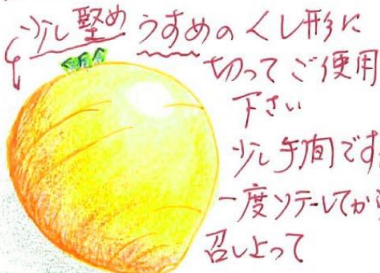 少し堅め うすめのくし形に
切ってご使用
下さい
少し手間です
一度ソテーしてから
召し上って